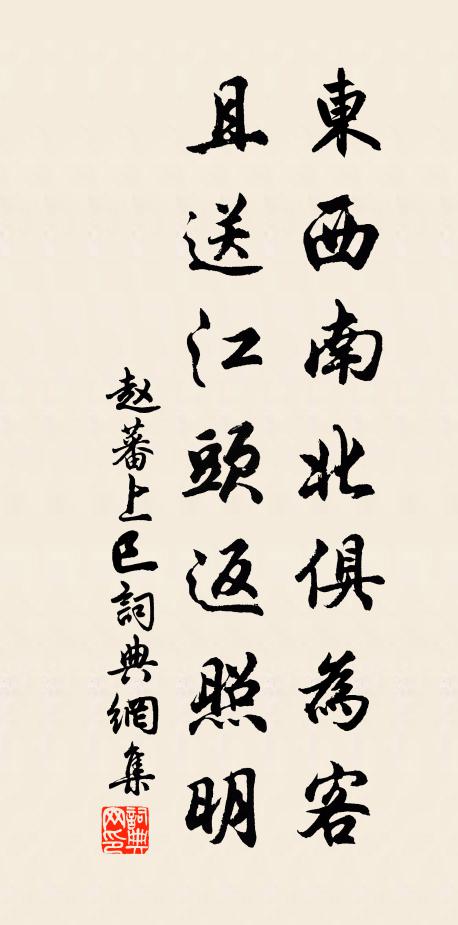 東西南北俱為客
且送江頭返照明
赵蕃上巳詞典網集
詞典網印